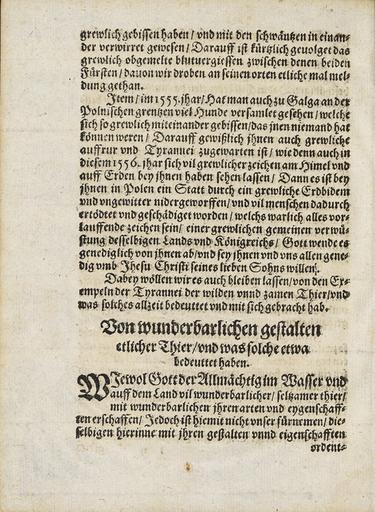 grewlich gebissen haben/ vnd mit den schwäntzen in einan-
der verwirret gewesen/ Darauff ist kürtzlich geuolget das
grewlich obgemelte blutuergiessen zwischen denen beiden
Fürsten/ dauon wir droben an seinen orten etliche mal mel-
dung gethan.
Item/ im 1555. jhar/ Hat man auch zu Galga an der
Polnischen grentzen viel Hunde versamlet gesehen/ welche
sich so grewlich miteinander gebissen/ das jnen niemand hat
können weren/ Darauff gewißlich jhnen auch grewliche
auffrur vnd Tyrannei zugewarten ist/ wie denn auch in
diesem 1556. jhar sich vil grewlicher zeichen am Himel vnd
auff Erden bey jhnen haben sehen lassen/ Dann es ist bey
jhnen in Polen ein Statt durch ein grewliche Erdbidem
vnd vngewitter nidergeworffen/ vnd vil menschen dadurch
ertödtet vnd geschädiget worden/ welchs warlich alles vor-
lauffende zeichen sein/ einer grewlichen gemeinen verwü-
stung desselbigen Lands vnd Königreichs/ Gott wende es
genediglich von jhnen ab/ vnd sey jhnen vnd vns allen gene-
dig vmb Jhesu Christi seines lieben Sohns willen.
Dabey wöllen wir es auch bleiben lassen/ von den Ex-
empeln der Tyrannei der wilden vnnd zamen Thier/ vnd
was solches allzeit bedeuttet vnd mit sich gebracht hab.
Von wunderbarlichen gestalten
etlicher Thier/ vnd was solche etwa
bedeuttet haben.
WJewol Gott der Allmächtig im Wasser vnd
auff dem Land vil wunderbarlicher/ seltzamer thier/
mit wunderbarlichen jhren arten vnd eygenschaff-
ten erschaffen/ Jedoch ist hiemit nicht vnser fürnemen/ die-
selbigen hierinne mit jhren gestalten vnnd eigenschafften
ordent-